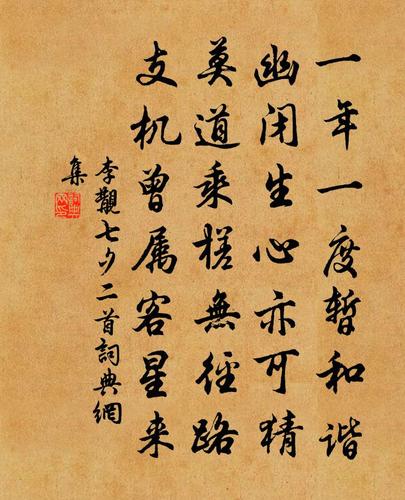 一年一度暂和谐
幽闭生心亦可猜
莫道乘槎無徑路
支机曾属客星来
李觀七夕二首詞典網
集